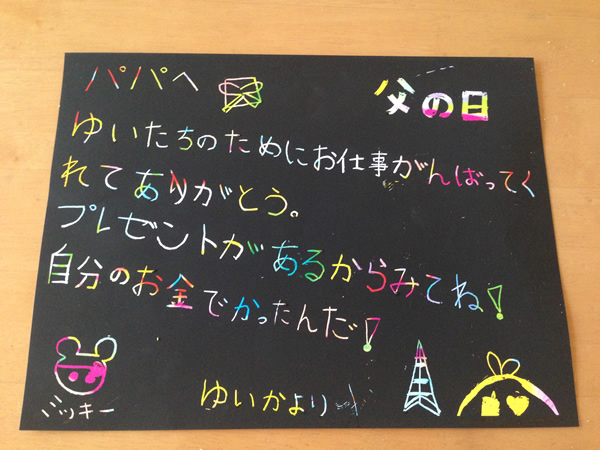 パパへ
父の日
ゆいたちのためにお仕事がんばってく
れてありがとう。
プレゼントがあるからみてね!
自分のお金でかったんだ!
ミッキー
ゆいかより